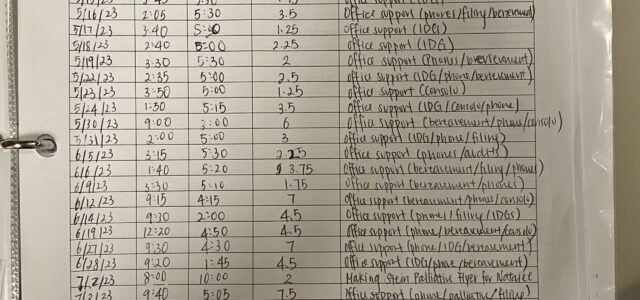 5/16/23 2:05 5:30 3.5 Office support (phones/filing/bereavement)
5/17/23 3:40 5:00 1.25 Office support (IDG)
5/18/23 2:40 5:00 2.25 Office support (IDG)
5/19/23 3:30 5:30 2 Office support (Phones/bereavement)
5/22/23 2:35 5:00 2.5 Office support (IDG/phone/bereavement)
5/23/23 3:50 5:00 1.25 Office support (Consolo)
5/24/23 1:50 5:15 3.5 Office support (IDG/consolo/phone)
5/30/23 9:00 3:00 6 Office support (bereavement/phone/consolo)
5/31/23 2:00 5:00 3 Office support (IDG/phone/filing)
6/5/23 3:15 5:30 2.25 Office support (phones/audits)
6/6/23 1:40 5:20 3.75 Office support (bereavement/filing/phones)
6/9/23 3:30 5:10 1.75 Office support (bereavement/phones)
6/12/23 9:15 4:15 7 Office support (bereavement/phones/consolo)
6/14/23 9:30 2:00 4.5 Office support (phones/filing/IDGs)
6/19/23 12:20 4:50 4.5 Office support (phone/bereavement/consolo)
6/27/23 9:30 4:30 7 Office support (phone/IDG/bereavement)
6/28/23 9:20 1:45 4.5 Office support (IDG/phone/bereavement)
7/2/23 8:00 10:00 2 Making Stein Palliative Flyer for Natalee
7/21/23 9:40 5:05 7.5 Office support (phone/palliative/filing)